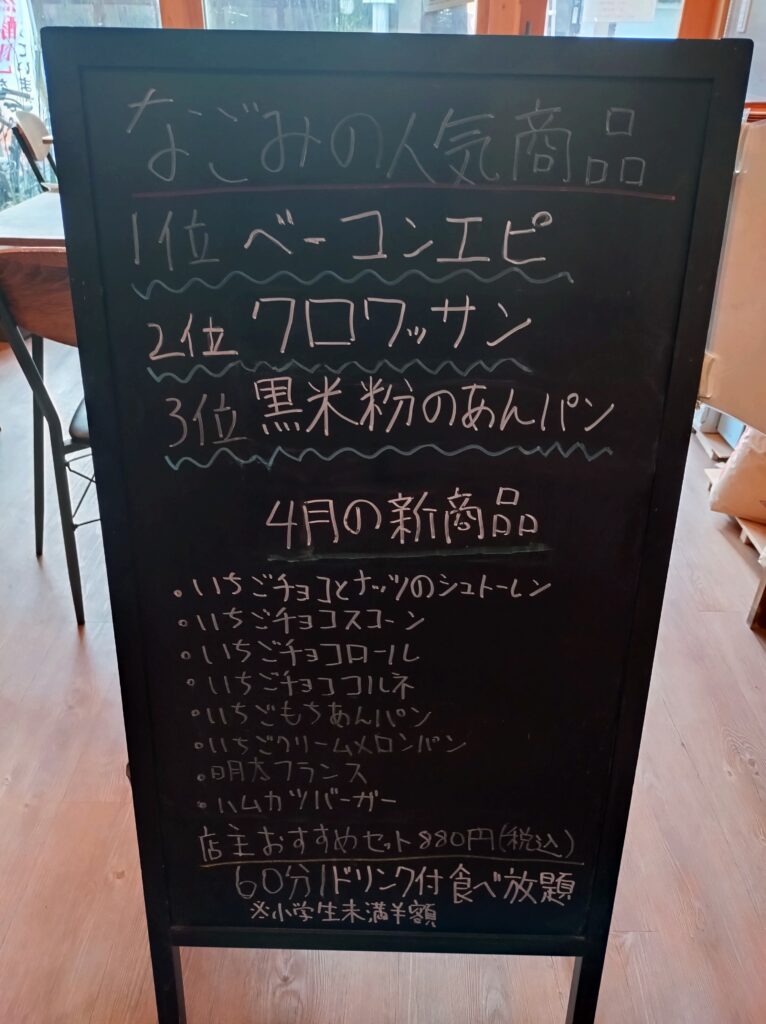 なごみの人気商品
1位 ベーコンエピ
2位 クロワッサン
3位 黒米粉のあんパン
4月の新商品
・いちごチョコとナッツのシュトーレン
・いちごチョコスコーン
・いちごチョコロール
・いちごチョココルネ
・いちごもちあんパン
・いちごクリームメロンパン
・明太フランス
・ハムカツバーガー
店主おすすめセット880円(税込)
60分1ドリンク付食べ放題
※小学生未満半額